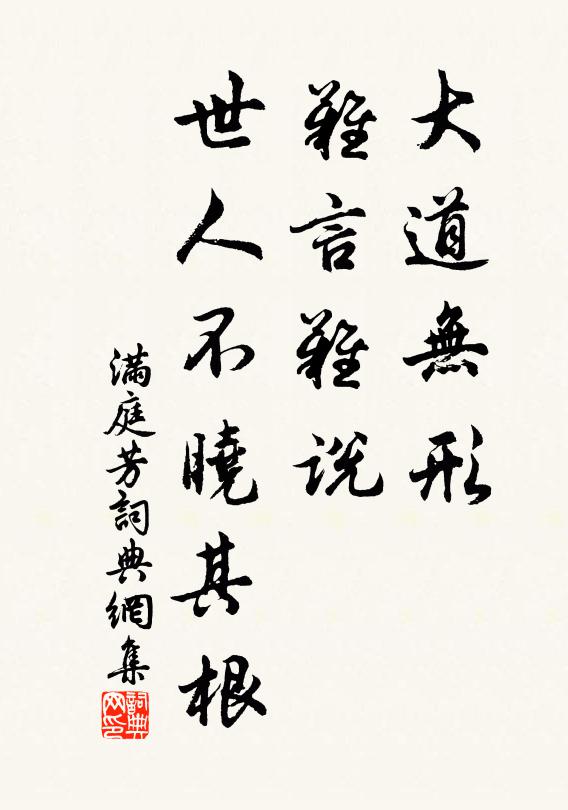 大道無形
難言難説
世人不曉其根
滿庭芳詞典網集
詞典
网印